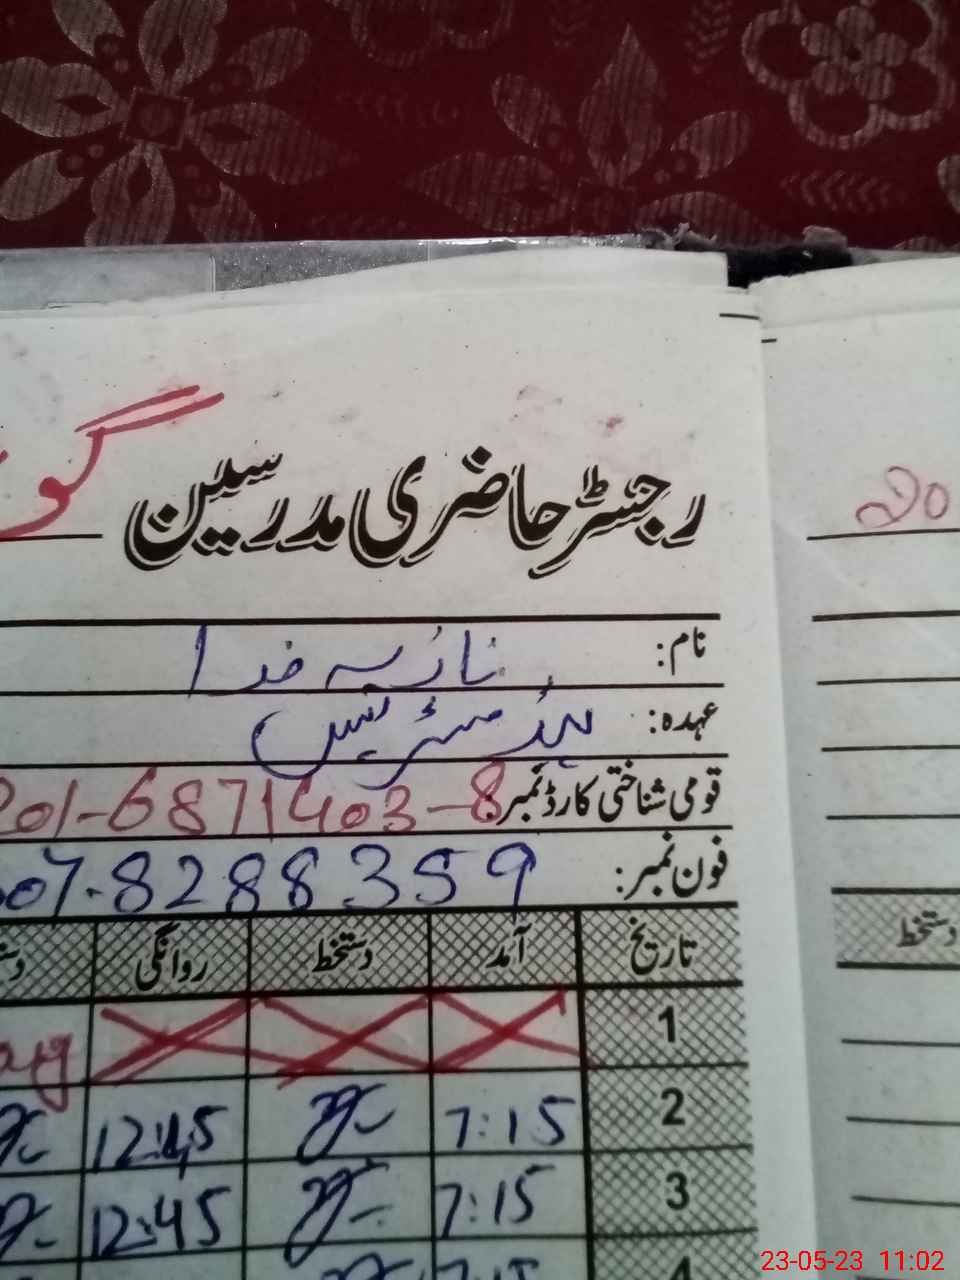 رجسٹر حاضری مدرسین گو
نام: نازیہ فدا
عہدہ: ہیڈ مسٹریس
قومی شناختی کارڈ نمبر: 201-6871403-8
فون نمبر: 07-8288359
تاریخ آمد دستخط روانگی
دستخط
1
2 7:15 12:45
3 7:15 12:45
4 7:15
23-05-23 11:02